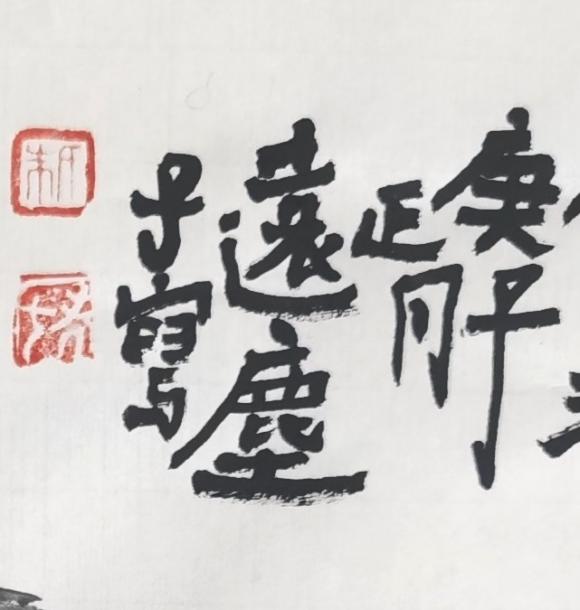 庚子
正月
遠塵
子寫